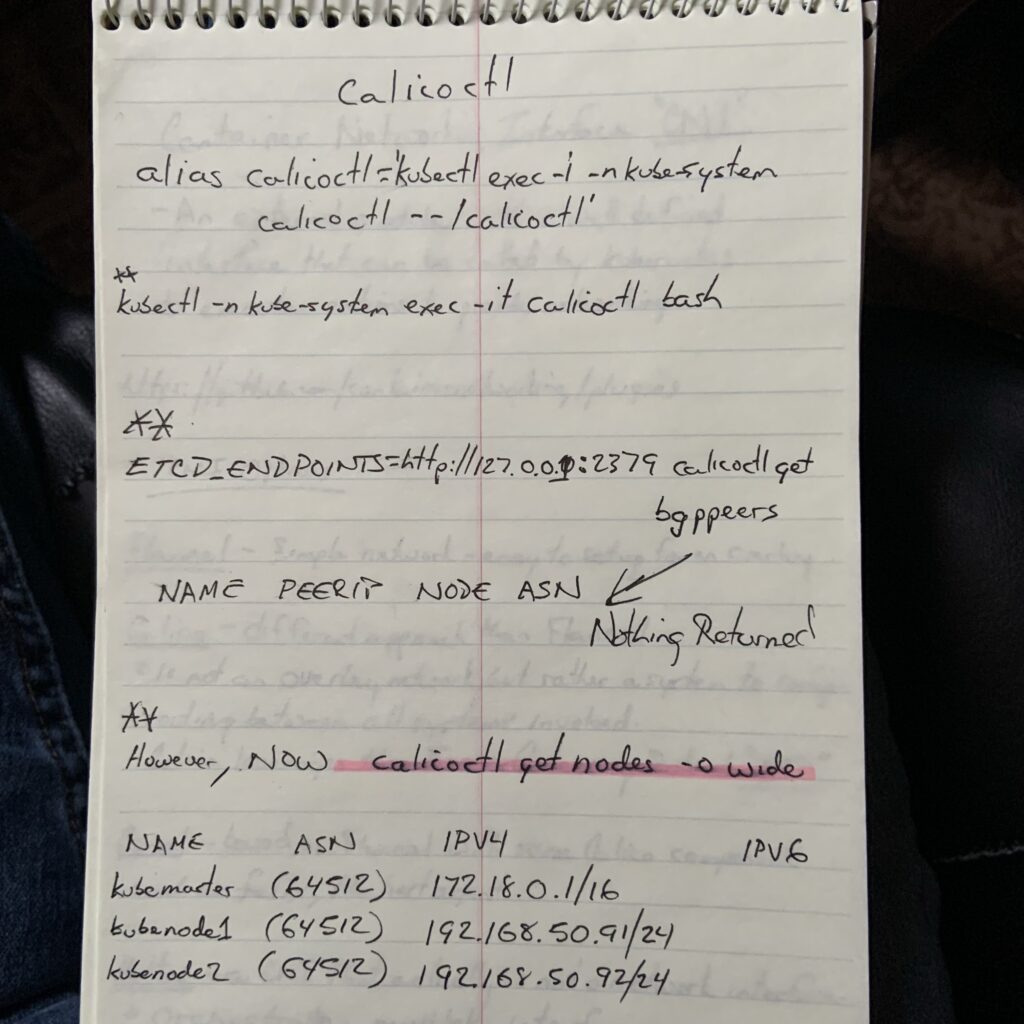 Calicoctl
alias calicoctl='kubectl exec -i -n kube-system
calicoctl -- /calicoctl'
**
kubectl -n kube-system exec -it calicoctl bash
**
ETCD_ENDPOINTS=http://127.0.0.1:2379 calicoctl get
bgppeers
NAME PEERIP NODE ASN
Nothing Returned
**
However, NOW calicoctl get nodes -o wide
NAME ASN IPV4 IPV6
kubemaster (64512) 172.18.0.1/16
kubenode1 (64512) 192.168.50.91/24
kubenode2 (64512) 192.168.50.92/24